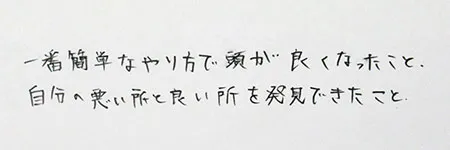 一番簡単なやり方で頭が良くなったこと.
自分の悪い所と良い所を発見できたこと.